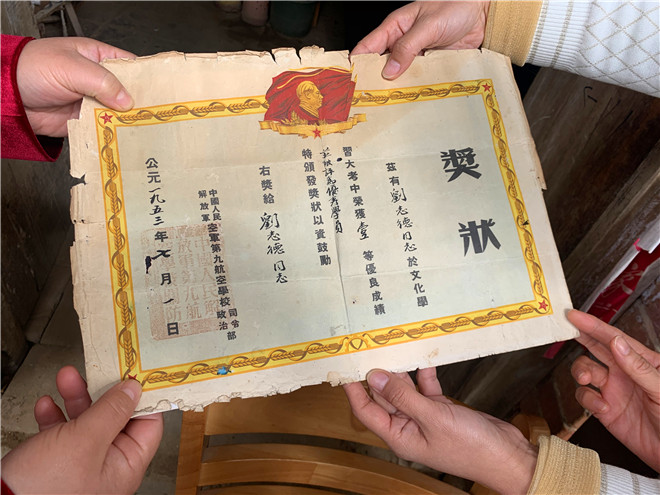 獎狀
茲有劉志德同志於文化學
習大考中榮獲壹等優良成績
並被評為優秀學員
特頒發獎狀以資鼓勵
右獎給 劉志德同志
中國人民解放軍空軍第九航空學校司令部政治
公元一九五三年七月一日